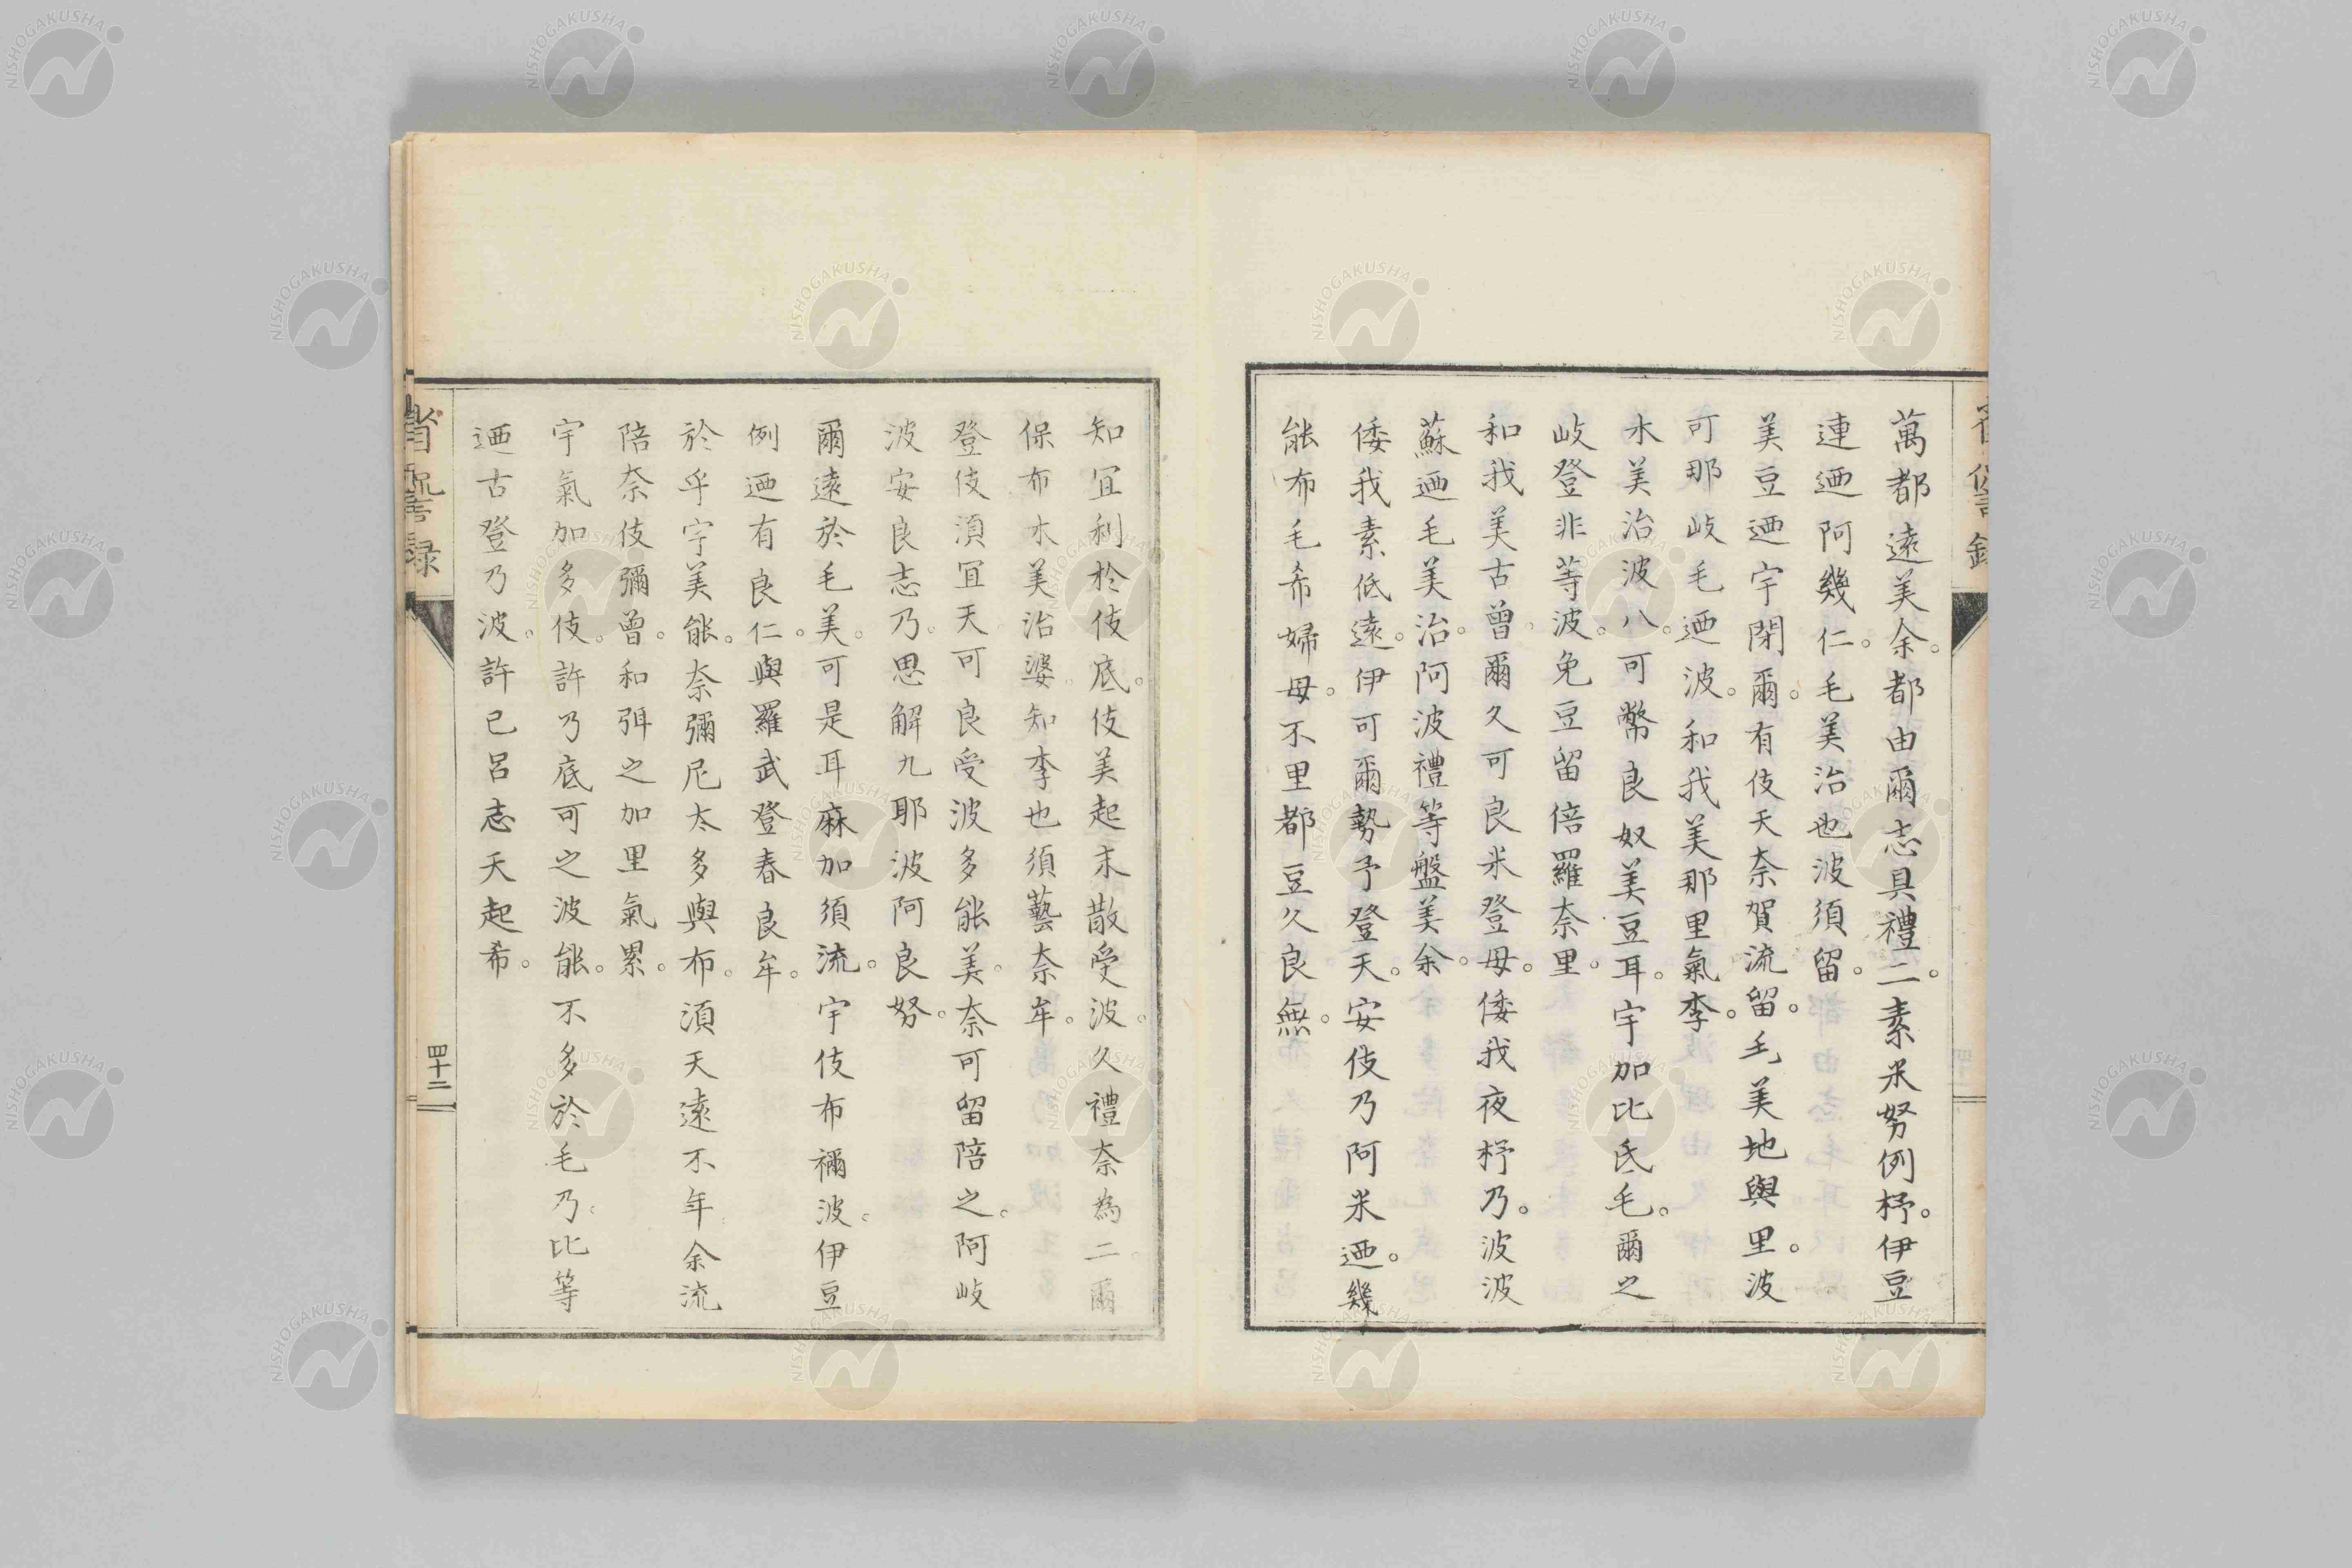 萬都遠美余。都由爾志具禮二。素米努例杼。伊豆
連迺阿幾仁。毛美治也波須留。
美豆迺宇閇爾。有伎天奈賀流留。毛美地與里。波
可那岐毛迺波。和我美那里氣李。
水美治波八。可幣良奴美豆耳。宇加比氐毛。爾之
岐登非等波。免豆留倍羅奈里。
和我美古曾。爾久可良米登母。倭我夜杼乃。波波
蘇迺毛美治。阿波禮等盤美余。
倭我素低遠。伊可爾勢予登天。安伎乃阿米迺。幾
能布毛希婦母。不里都豆久良無。
知冝利於伎底。伎美起末散受波。久禮奈為二。爾
保布木美治婆。知李也須藝奈牟。
登伎湏冝天。可良受波多能美。奈可留陪之。阿岐
波安良志乃。思解九耶波阿良努。
爾遠於毛美。可是耳麻加須流。宇伎布禰波。伊豆
例迺有良仁。與羅武登春良牟。
於乎宇美能。奈彌尼太多與布。湏天遠不年。余流
陪奈伎彌曾。和弭之加里氣累。
宇氣加多伎。許乃底可之波能。不多於毛乃。比等
迺古登乃波。許已呂志天起希。
省諐録
四十二
NISHOGAKUSHA